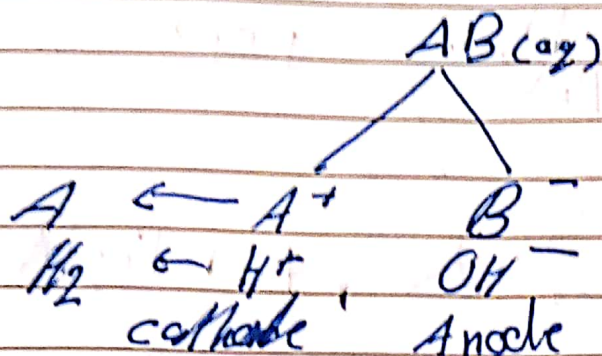 AB(aq)
A ← A⁺ B⁻
H₂ ← H⁺ OH⁻
cathode Anode